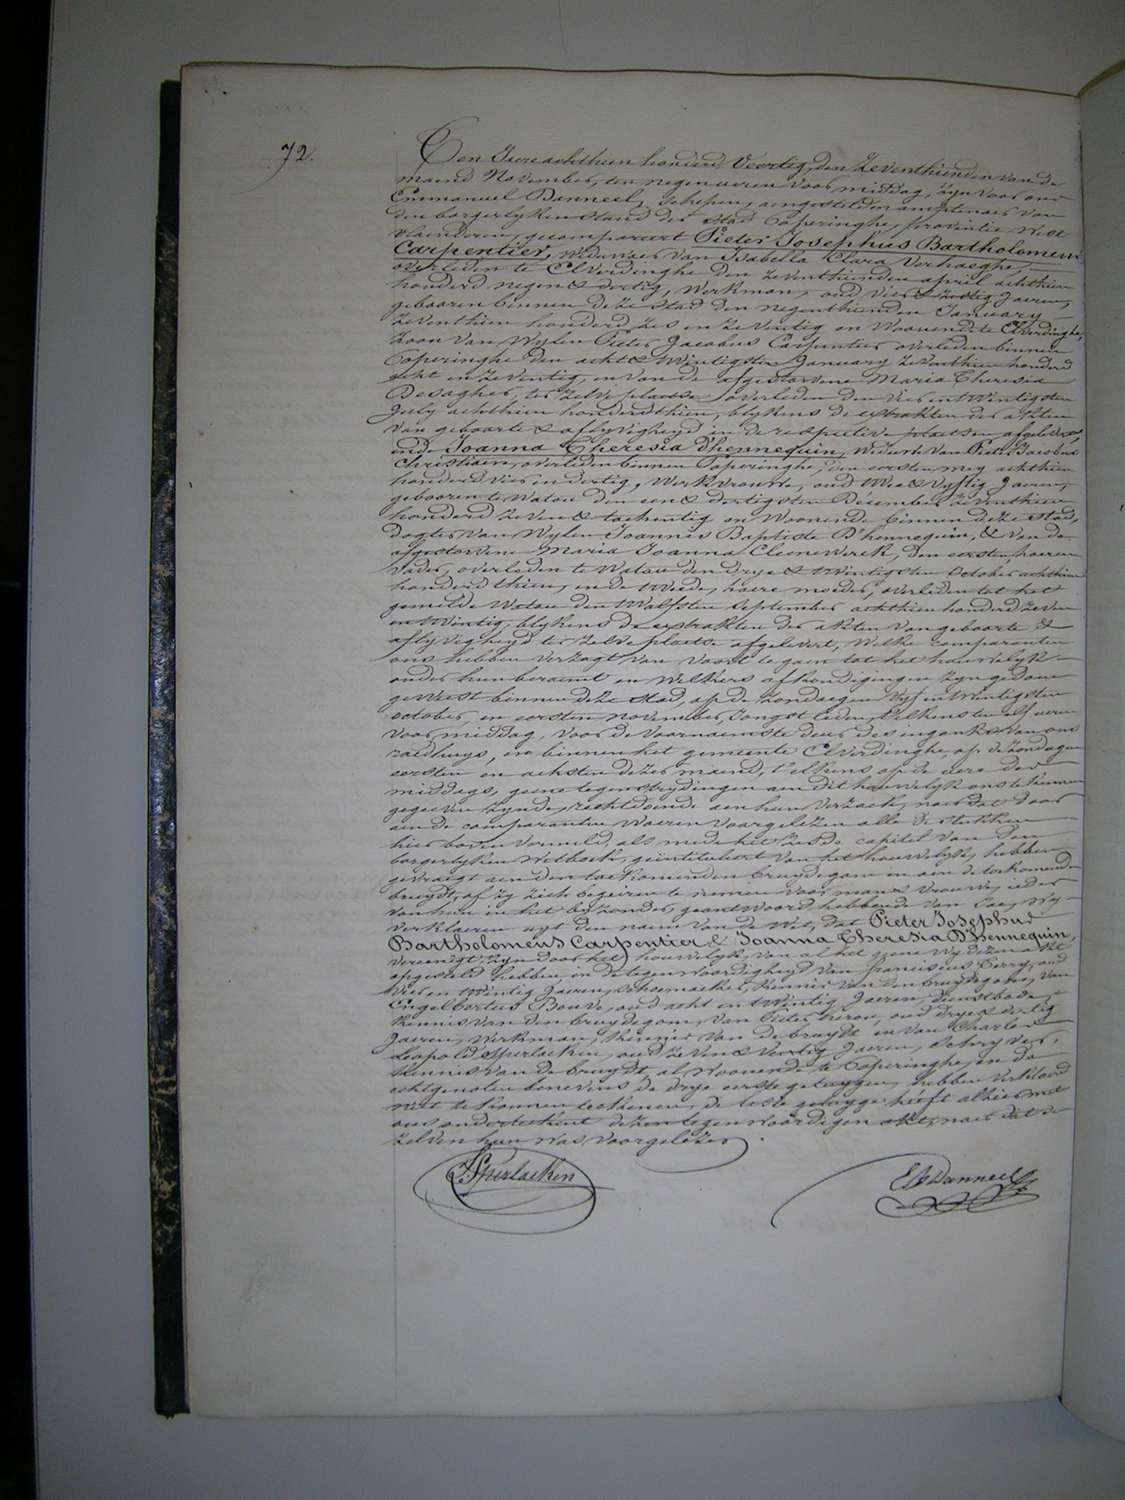 72.
Den Jaere achthien honderd Veertig, den Zeventhienden van de
maend November, ten negen ueren voor middag, zyn voor ons
Emmanuel Danneel, Schepen, aengestelden amptenaer van
den borgerlyken Stand der Stad Poperinghe, provintie West
vlaenderen, gecompareert Pieter Josephus Bartholomeus
Carpentier, Weduwaer van Isabella Clara Verhaeghe,
overleden te Elverdinghe den Zeventhienden april achthien
honderd negen & dertig, Werkman, oud vier & Zestig Jaeren,
gebooren binnen deze Stad den negenthienden January
Zeventhien honderd Zes en Zeventig en Woonende te Elverdinghe,
Zoon van Wylen Pieter Jacobus Carpentier overleden binnen
Poperinghe den acht & twintigsten January Zeventhien honderd
acht en Zeventig, en van de afgestorvene Maria Theresia
Desagher, ter Zelve plaetse overleden den vier en twintigsten
July achthien honderd thien, blykens de extrakten der akten
van geboorte & aflyvigheyd in de respective plaetsen afgelevert,
ende Joanna Theresia D'hennequin, Weduwe van Pieter Jacobus
Christiaen, overleden binnen Poperinghe, den eersten mey achthien
honderd vier en dertig, Werkvrouwe, oud twee & vyftig Jaeren,
gebooren te Watou den een & dertigsten December Zeventhien
honderd Zeven & tachentig en Woonende binnen deze Stad,
dogter van Wylen Joannes Baptiste D'hennequin, & van de
afgestorvene Maria Joanna Cleenewerck, den eersten, haeren
vader, overleden te Watou den drye & twintigsten October achthien
honderd thien, en de tweede, haere moeder, overleden tot het
gemelde Watou den twalfsten September achthien honderd Zeven
en twintig, blykens de extrakten der akten van geboorte &
aflyvigheyd ter Zelve plaetse afgelevert, Welke comparanten
ons hebben verzogt van voort te gaen tot het houwelyk
onder hun beraemt en Welkers afkondigingen zyn gedaen
geweest binnen deze Stad, op de Zondagen vyf en twintigsten
October, en eersten november, Jongst leden, telkens ten elf ueren
voor middag, voor de voornaemste deur des ingank van ons
raedhuys, en binnen het gemeente Elverdinghe, op de Zondagen
eersten en achsten dezer maend, telkens, op de uere der
middags, geene tegenstrydingen aen dit houwelyk ons te kennen
gegeven zynde, rechtdoende aen hun verzoek, naer dat door
aen de comparanten Waeren voorgelezen alle de stukken
hier boven vermeld, als mede het Zesde capitel van den
borgerlyken Wetboek, geintituleert van het houwelyk, hebben
gevraegt aen den toekomenden bruydegom en aen de toekomende
bruydt, of zy zich begeiren te nemen voor man & vrouwe, ieder
van hun in het byzonder, geantWoord hebbende van Jae, Wy
verklaeren uyt den naem van de Wet, dat Pieter Josephus
Bartholomeus Carpentier, & Joanna Theresia D'hennequin,
vereenigt zyn door het houwelyk, van al het gone Wy deze akt
opgesteld hebben in de tegenwoordigheyd van franciscus Terry, oud
vier en twintig Jaeren, schoemaker, kennis van den bruydegom, van
Engelbertus Bouve, oud acht en twintig Jaeren, dienstbode,
kennis van den bruydegom, van Pieter oud drye & dertig
Jaeren, Werkman, kennis van de bruydt en van Charles
Leopold Spurlacken, oud Zeven & veertig Jaeren, schryver,
kennis van de bruydt, al Woonende te Poperinghe, en de
echtgenoten benevens de drye eerste getuygen, hebben verklaerd
niet te konnen teekenen, de leste getuyge heeft alhier met
ons onderteekent dezen tegenwoordigen akt, naer dat de
Zelven hun was voorgelezen
Spurlacken
Danneel